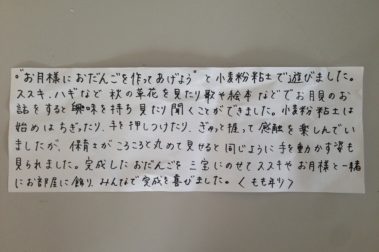 "お月様におだんごを作ってあげよう"と小麦粉粘土で遊びました。
ススキ、ハギなど秋の草花を見たり歌や絵本などでお月見のお
話をすると興味を持ち見たり聞くことができました。小麦粉粘土は
始めはちぎったり、手を押しつけたり、ぎゅっと握って感触を楽しんでい
ましたが、保育士がころころと丸めて見せると同じように手を動かす姿も
見られました。完成したおだんごを三宝にのせてススキやお月様と一緒
にお部屋に飾り、みんなで完成を喜びました。〈もも年り〉